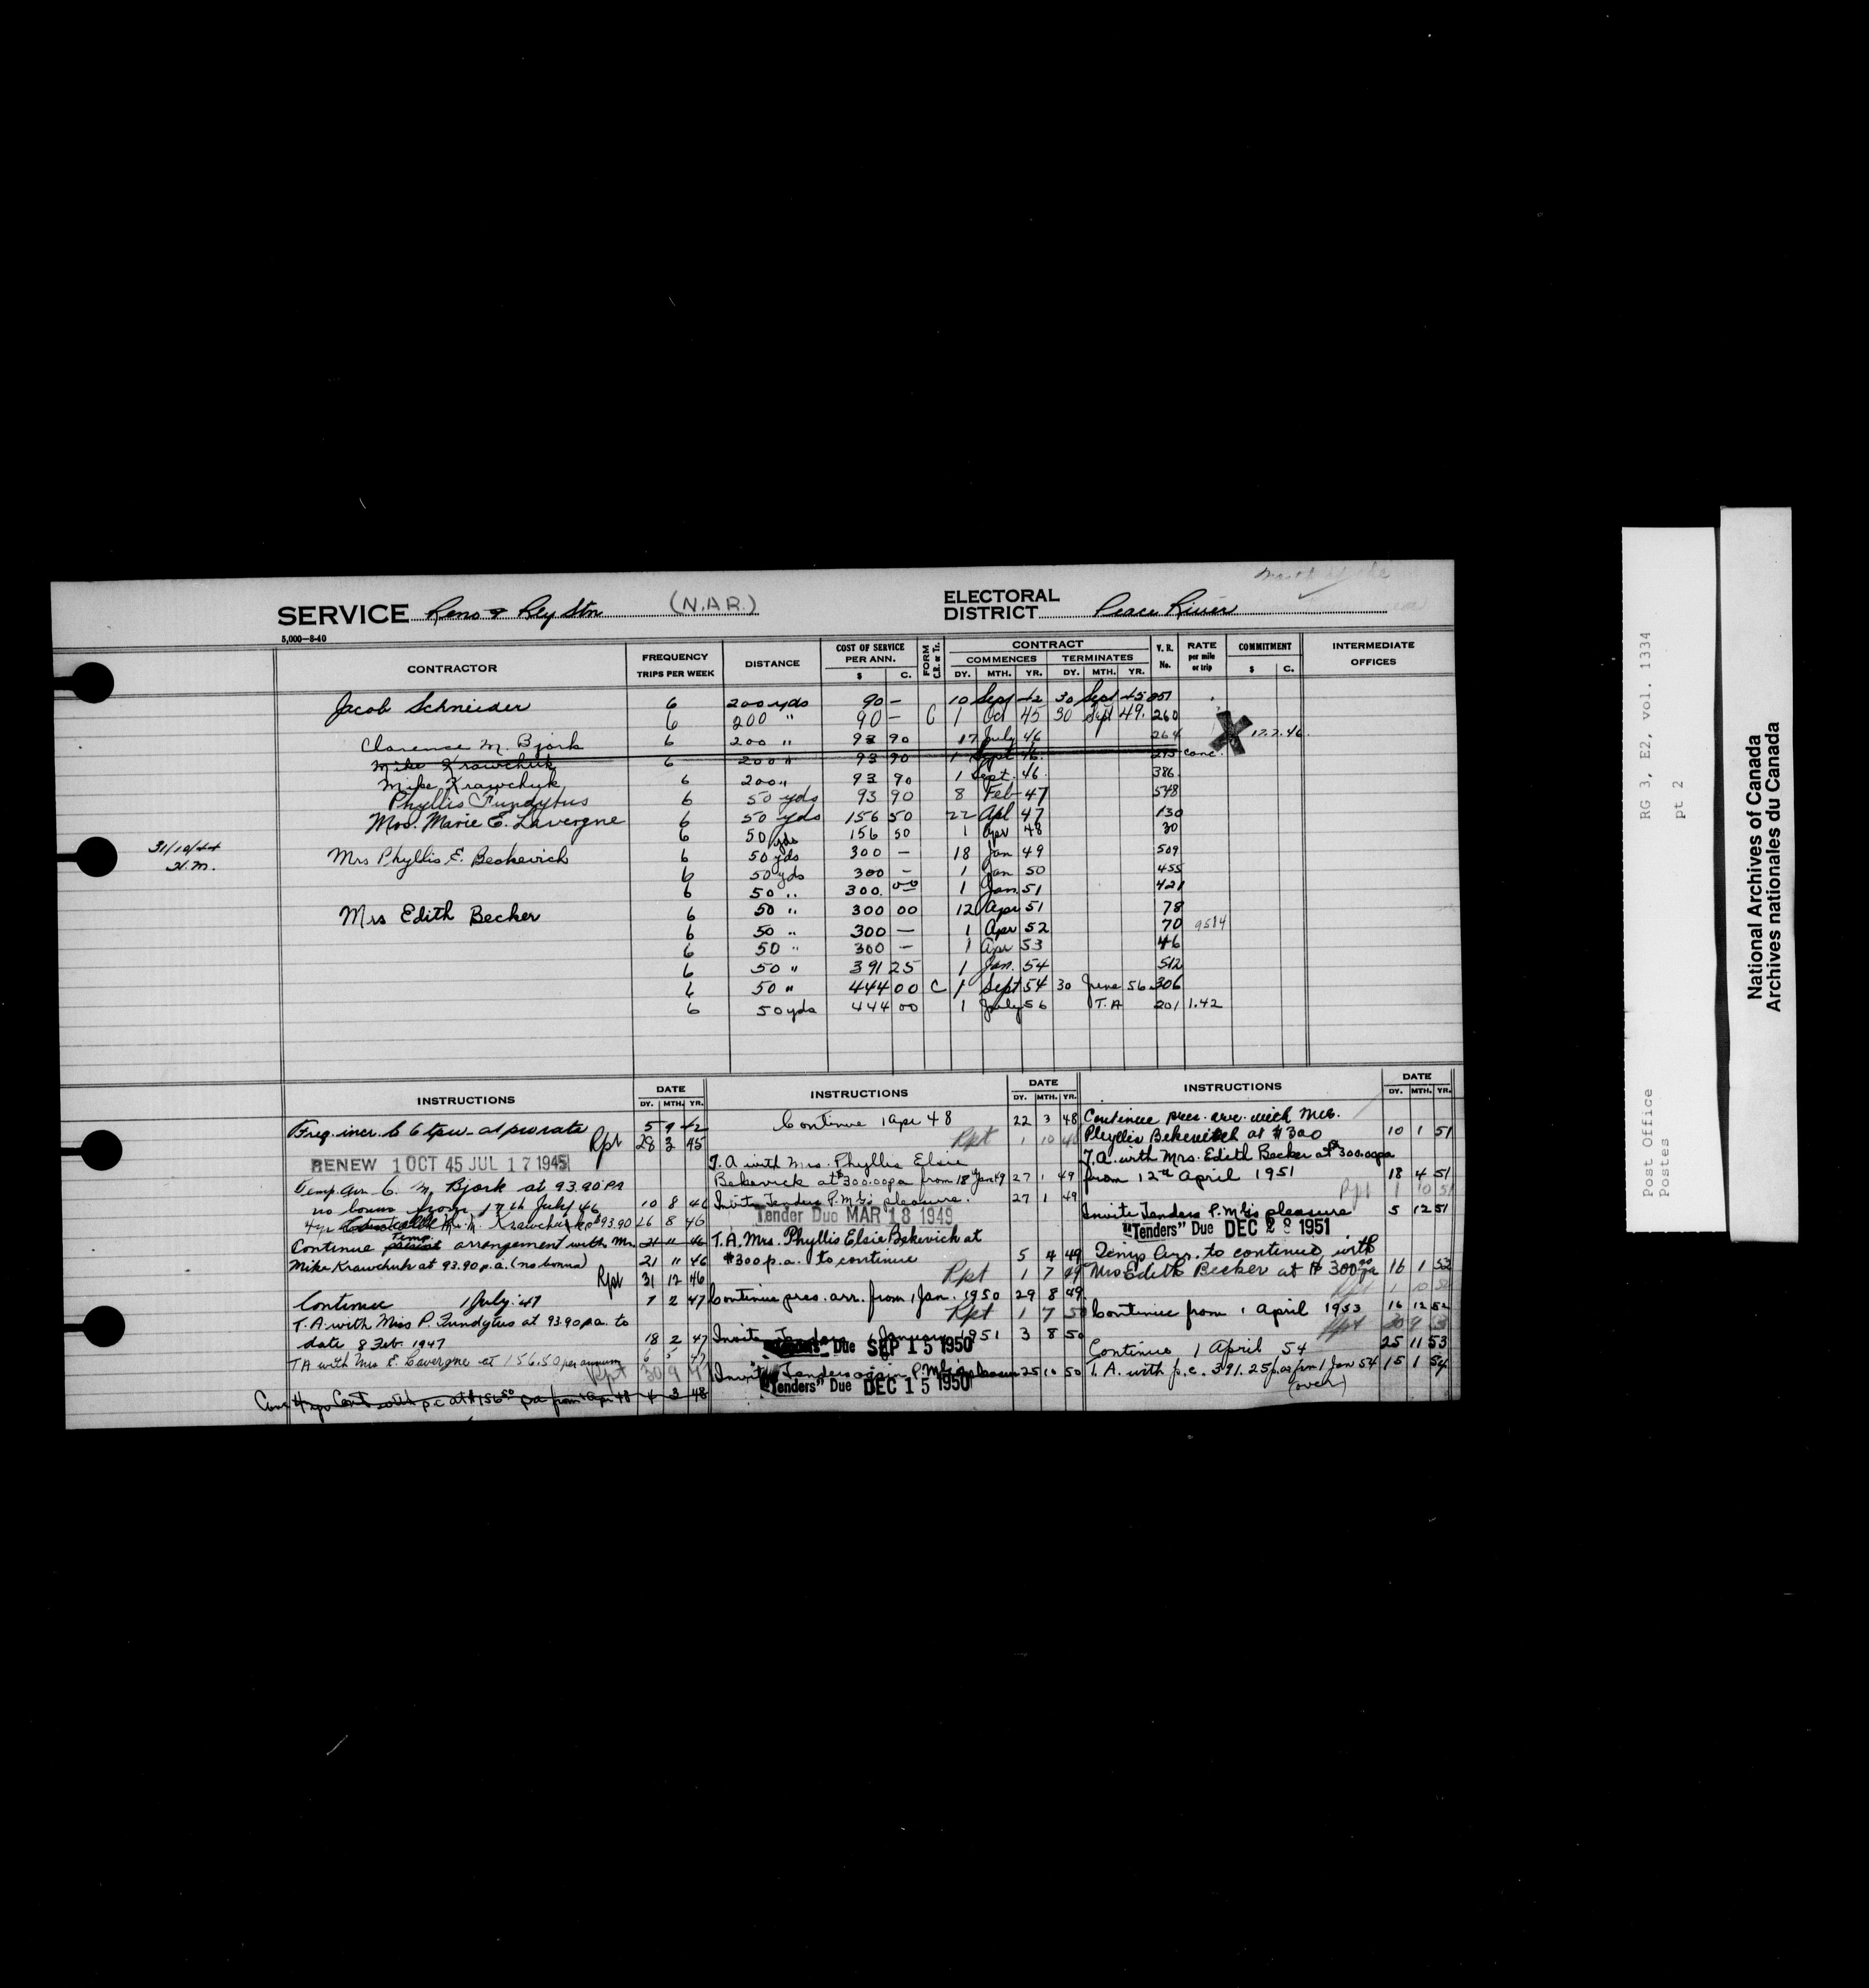 SERVICE Reno & Rly Stn (N.A.R.) ELECTORAL DISTRICT Peace River
5,000-8-40
CONTRACTOR FREQUENCY TRIPS PER WEEK DISTANCE COST OF SERVICE PER ANN. $ C. FORM C.R. or Tr. CONTRACT COMMENCES DY. MTH. YR. TERMINATES DY. MTH. YR. V.R. No. RATE per mile or trip COMMITMENT $ C. INTERMEDIATE OFFICES
Jacob Schneider 6 200 yds 90 — 10 Sept 42 30 Sept 45 057
6 200 " 90 — C 1 Oct 45 30 Sept 49. 260
Clarence M. Bjork 6 200 " 93 90 17 July 46 264 X 17.7.46.
Mike Krawchuk 6 200 " 93 90 1 Sept 46. 295 canc.
Mike Krawchuk 6 200 " 93 90 1 Sept. 46 386
Phyllis Fundytus 6 50 yds 93 90 8 Feb 47 548
Mrs. Marie E. Lavergne 6 50 yds 156 50 22 Apl 47 130
6 50 yds 156 50 1 Apr 48 30
31/10/44
H.M.
Mrs Phyllis E. Beckevich 6 50 yds 300 — 18 Jan 49 509
6 50 yds 300 — 1 Jan 50 455
6 50 " 300. 00 1 Jan. 51 421
Mrs Edith Becker 6 50 " 300 00 12 Apr 51 78
6 50 " 300 — 1 Apr 52 70 9514
6 50 " 300 — 1 Apr 53 46
6 50 " 391 25 1 Jan. 54 512
6 50 " 444 00 C 1 Sept 54 30 June 56 306
6 50 yds 444 00 1 July 56 T.A 201 1.42
INSTRUCTIONS DATE DY. MTH. YR.
Freq. incr. to 6 tpw. at pro rata 5 9 42
Rpt 28 3 45
RENEW 1 OCT 45 JUL 17 1945
Temp. arr. C. M. Bjork at 93.90 pa
no bonus from 17th July 46 10 8 46
4 yr Mr. M. Krawchuk 93.90 26 8 46
Continue Temp. arrangement with Mr. 21 11 46
Mike Krawchuk at 93.90 p.a. (no bonus) 21 11 46
Rpt 31 12 46
Continue 1 July. 47 7 2 47
T.A with Miss P. Fundytus at 93.90 p.a. to
date 8 Feb. 1947 18 2 47
TA with Mrs E. Lavergne at 156.50 per annum 6 5 47
Rpt 30 9 47
Canc 4 yr Cont with p.c at $156.50 pa from 1 Apr 48 4 3 48
INSTRUCTIONS DATE DY. MTH. YR.
Continue 1 Apr 48 22 3 48
Rpt 1 10 48
T.A with Mrs. Phyllis Elsie
Bekevich at $300.00 pa from 18th Jan 49 27 1 49
Invite Tenders P.M.G's pleasure. 27 1 49
Tender Due MAR 18 1949
T.A. Mrs. Phyllis Elsie Bekevich at
$300 p.a. to continue 5 4 49
Rpt 1 7 49
Continue pres. arr. from 1 Jan. 1950 29 8 49
Rpt 1 7 50
Invite Tenders 1 January 1951 3 8 50
Due SEP 15 1950
Invite Tenders again P.M.G's pleasure 25 10 50
"Tenders" Due DEC 15 1950
INSTRUCTIONS DATE DY. MTH. YR.
Continue pres. arr. with Mrs.
Phyllis Bekevitch at $300 10 1 51
T.A. with Mrs. Edith Becker at $300.00 pa
from 12th April 1951 18 4 51
Rpt 1 10 51
Invite Tenders P.M.G's pleasure 5 12 51
"Tenders" Due DEC 28 1951
Temp Arr. to continue with
Mrs Edith Becker at $300.00 pa 16 1 52
Rpt 1 10 52
Continue from 1 April 1953 16 12 52
Rpt 30 9 53
Continue 1 April 54 25 11 53
T.A. with p.c. 391.25 p.a. frm 1 Jan 54 15 1 54
(over)
RG 3, E2, vol. 1334
pt 2
Post Office
Postes
National Archives of Canada
Archives nationales du Canada